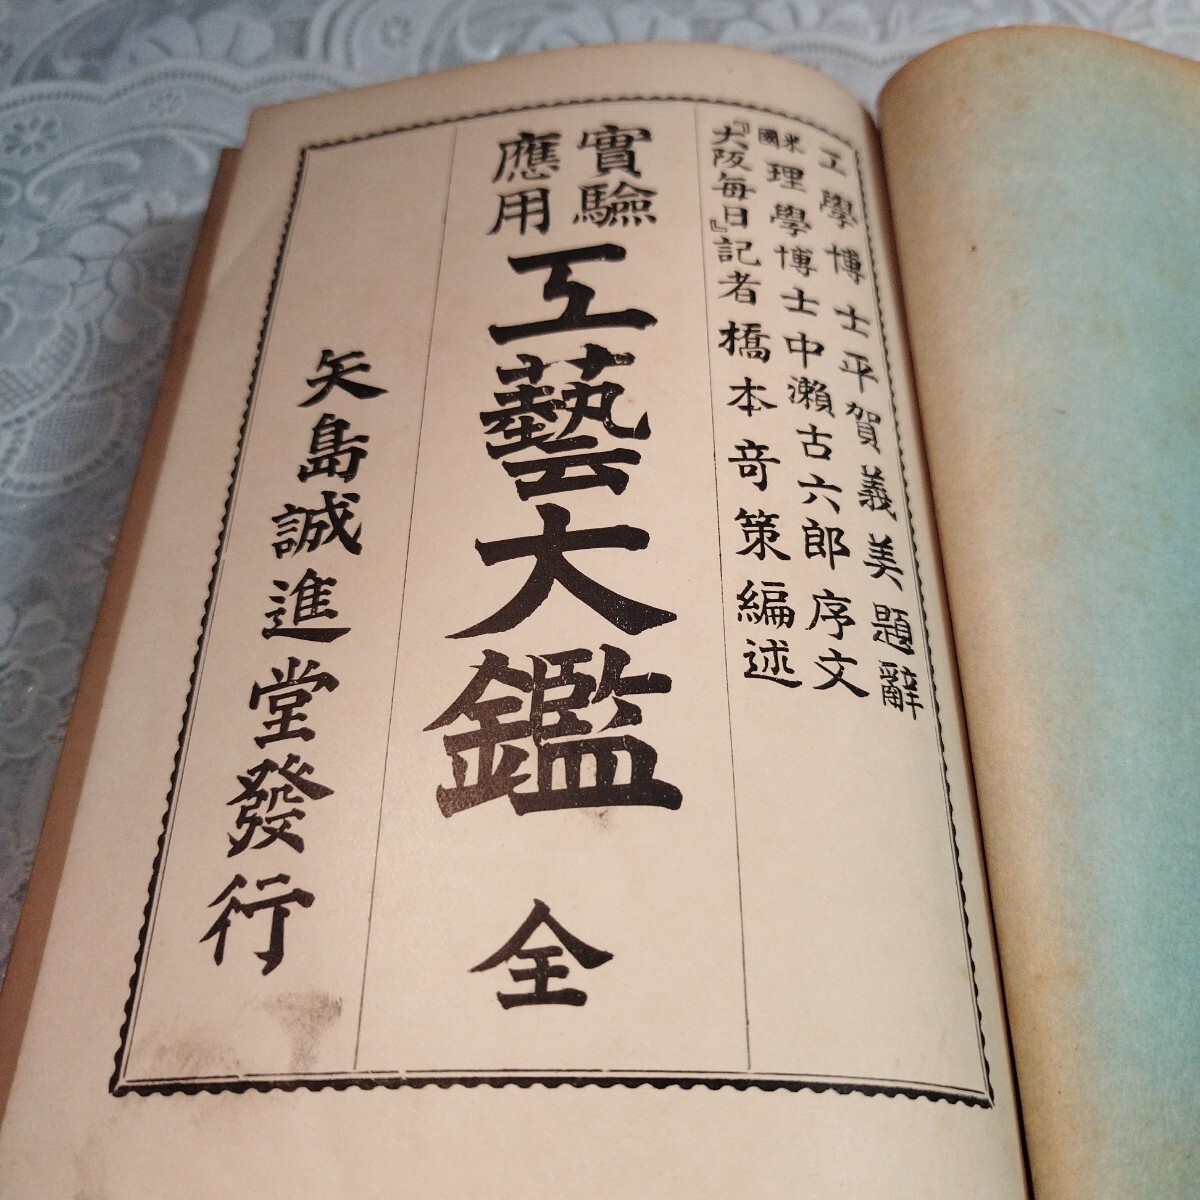 工學博士平賀義美題辭
米國理學博士中瀨古六郎序文
『大阪毎日』記者橋本奇策編述
實驗
應用
工藝大鑑 全
矢島誠進堂發行